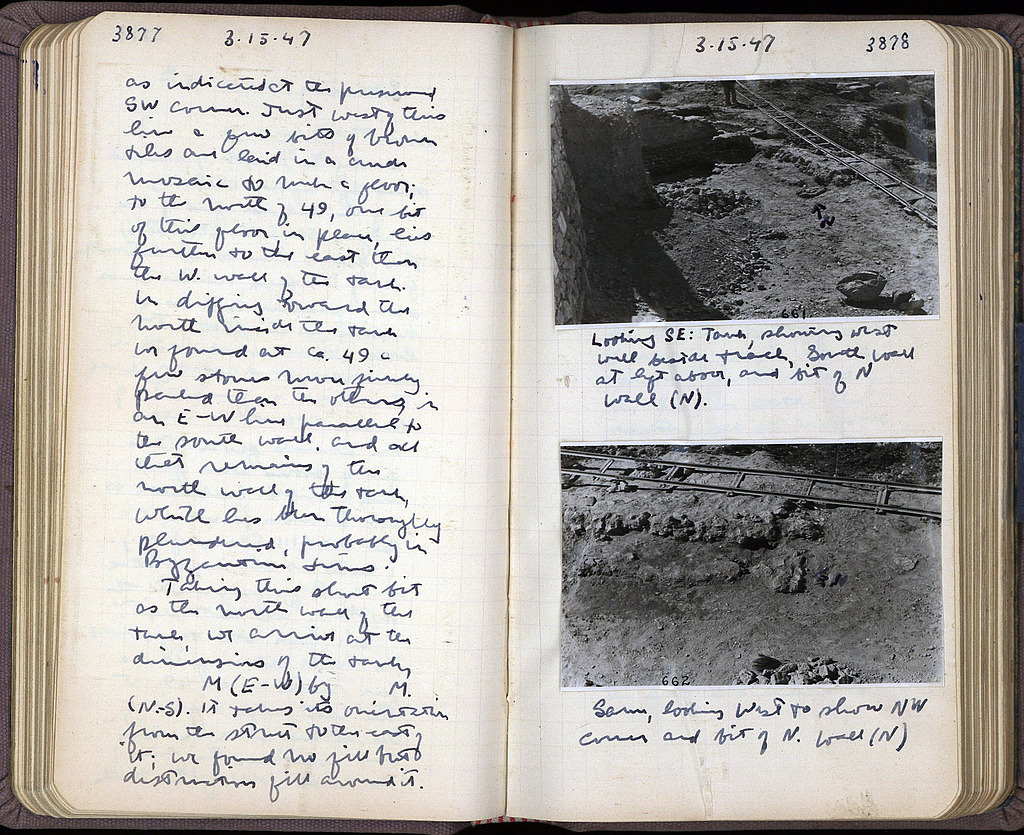 3877 3-15-47
as indicated at the presumed
SW corner. Just west of this
line a few bits of broken
tiles are laid in a crude
mosaic to make a floor;
to the north of 49, one bit
of this floor in place, lies
further to the east than
the W. wall of the tank.
In digging toward the
north inside the tank
we found at ca. 49 a
few stones more firmly
placed than the others, in
an E-W line parallel to
the south wall, and all
that remains of the
north wall of the tank,
which has been thoroughly
plundered, probably in
Byzantine times.
Taking this short bit
as the north wall of the
tank, we arrive at the
dimensions of the tank,
M (E-W) by M.
(N-S). It takes its orientation
from the street to the east of
it; we found no fill but
destruction fill around it.
3-15-47 3878
N
661
Looking SE: Tank, showing west
wall beside track, South wall
at left above, and bit of N
wall (N).
N
662
Same, looking West to show NW
corner and bit of N. wall (N)